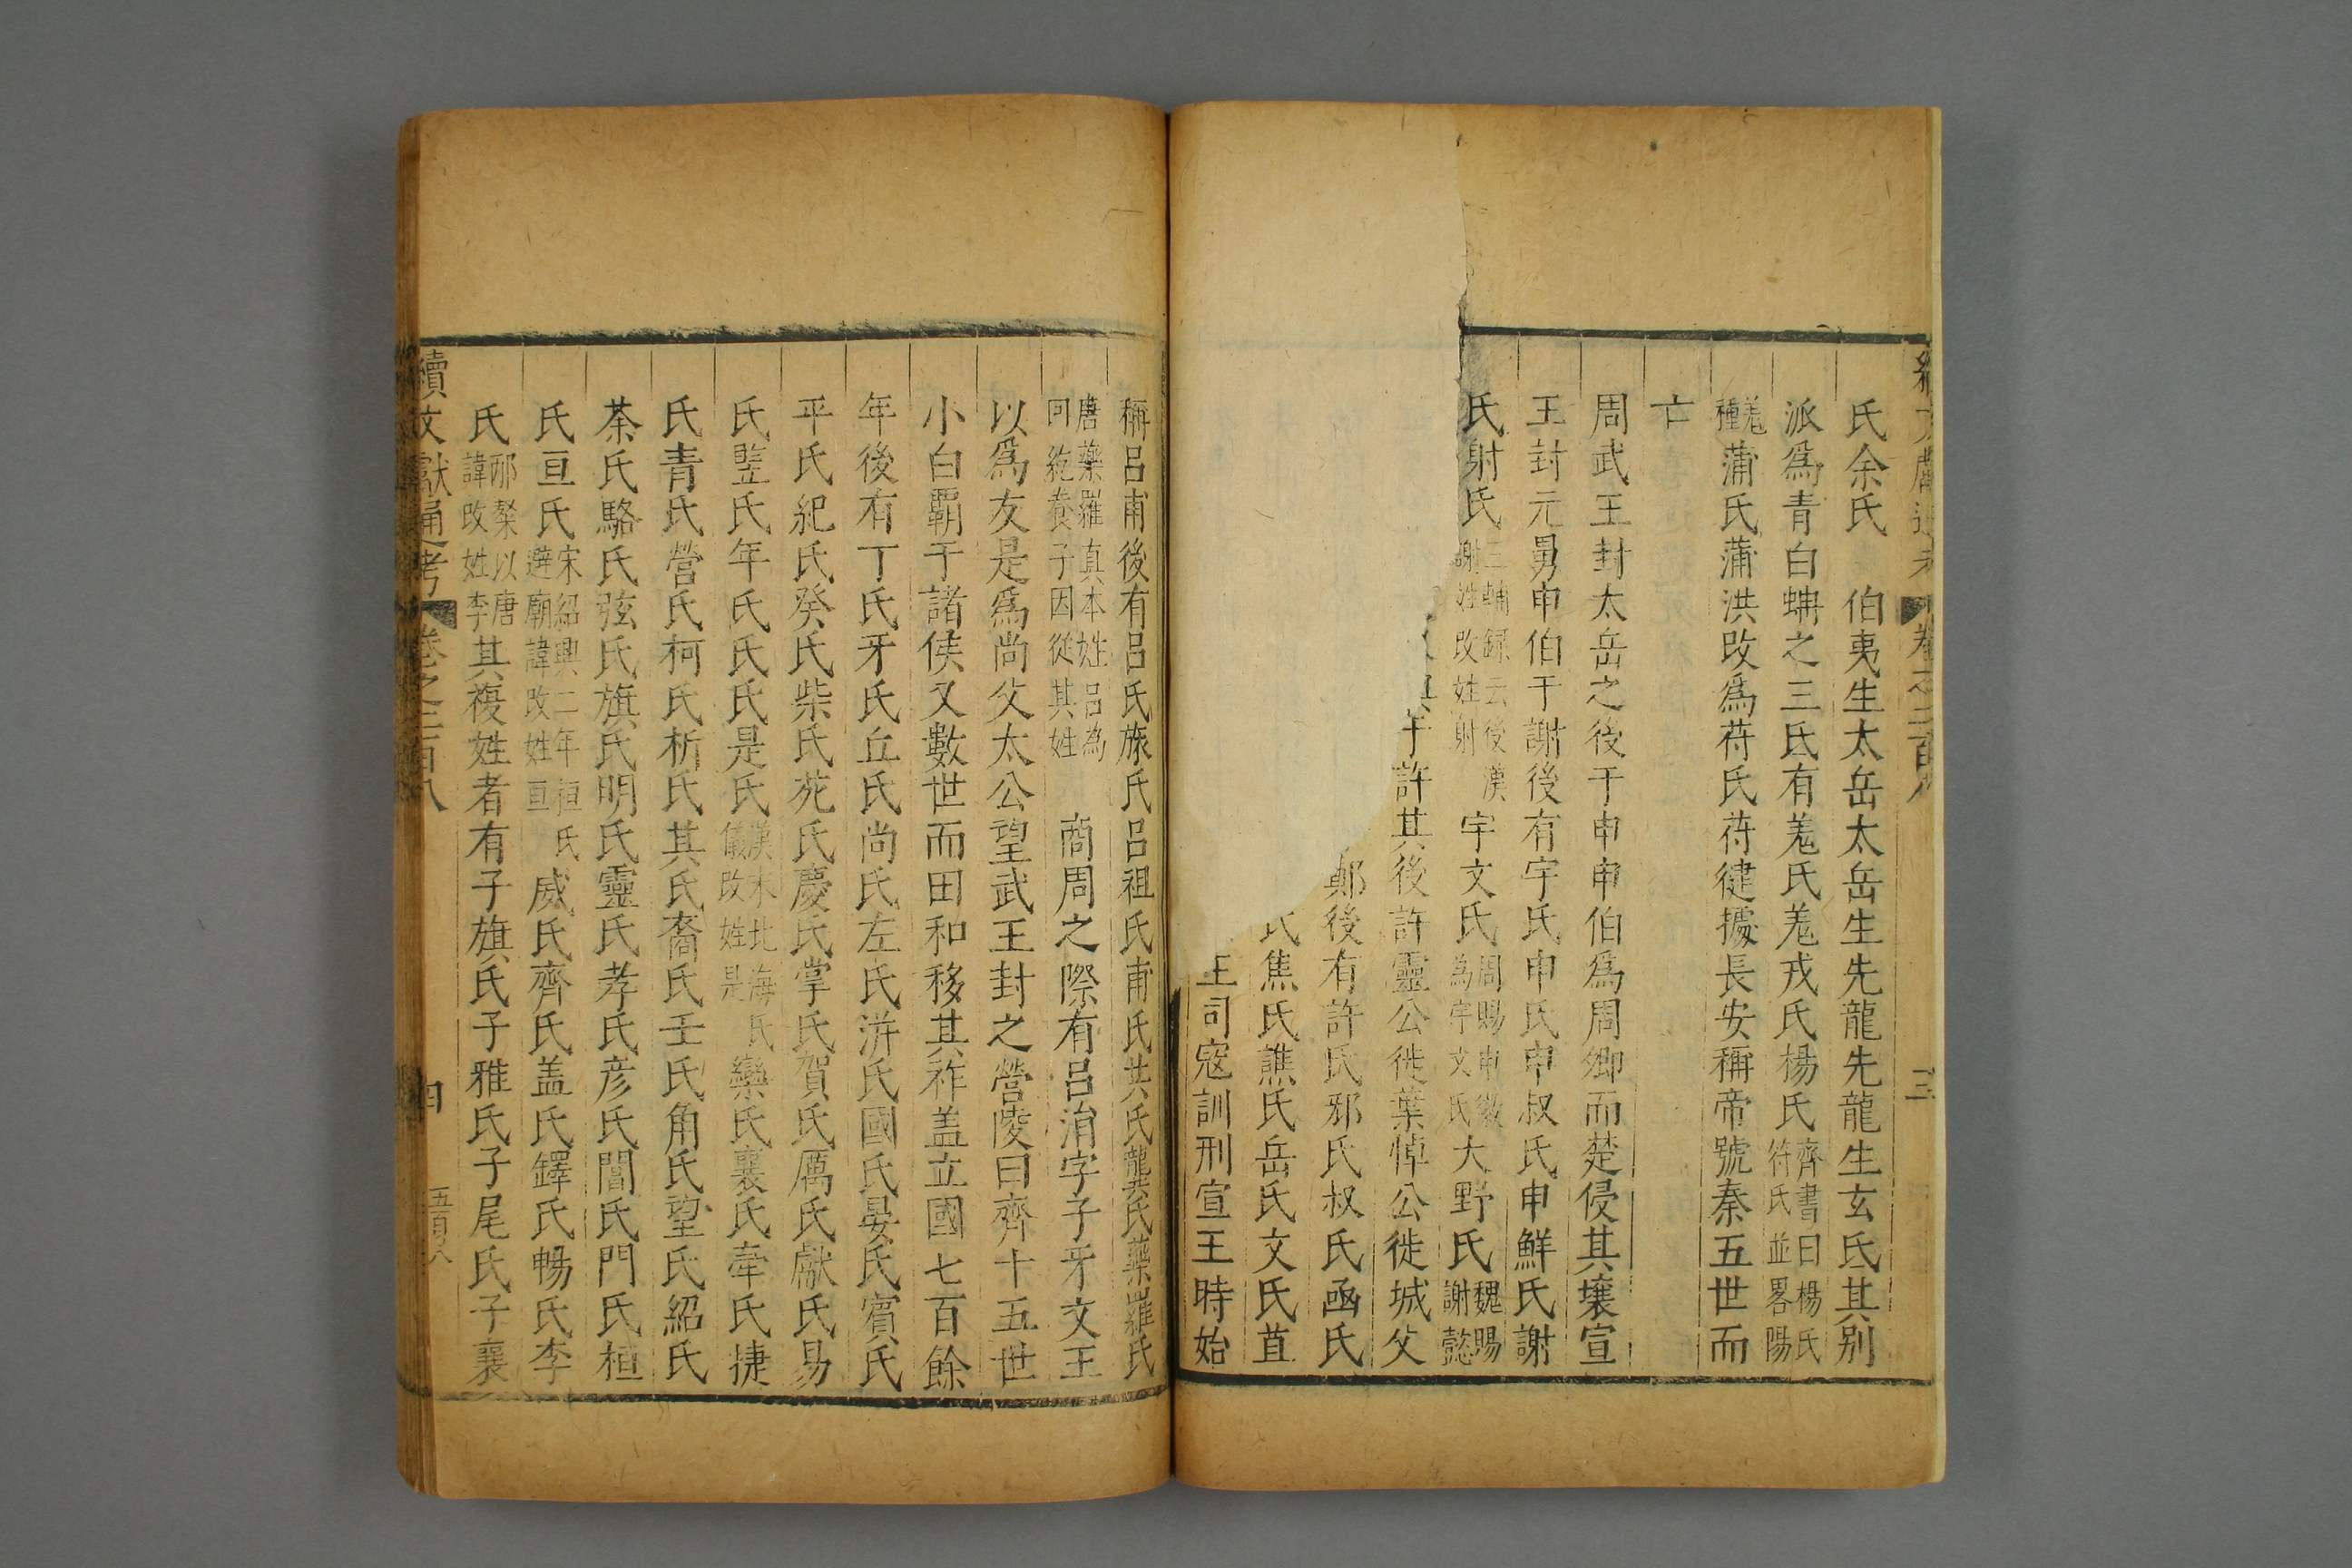 氏余氏　伯夷生太岳太岳生先龍先龍生玄氐其别
派爲青白蚺之三氐有羗氏羗戎氏楊氏齊書曰楊氏符氏並畧陽
羗種蒲氏蒲洪改爲苻氏苻健據長安稱帝號秦五世而
亡
周武王封太岳之後于申申伯爲周卿而楚侵其壤宣
王封元舅申伯于謝後有宇氏申氏申叔氏申鮮氏謝
氏射氏三輔録云後漢謝姓改姓射宇文氏周賜申徽為宇文氏大野氏魏賜謝懿
于許其後許靈公徙葉悼公徙城父
鄭後有許氏邪氏叔氏函氏
氏焦氏譙氏岳氏文氏苴
王司寇訓刑宣王時始
稱吕甫後有吕氏旅氏吕祖氏甫氏共氏龔氏藥羅氏
唐藥羅真本姓吕為回紇養子因從其姓　商周之際有吕涓字子牙文王
以爲友是爲尚父太公望武王封之營陵曰齊十五世
小白覇于諸侯又數世而田和移其祚盖立國七百餘
年後有丁氏牙氏丘氏尚氏左氏洴氏國氏晏氏賓氏
平氏紀氏癸氏柴氏苑氏慶氏掌氏賀氏厲氏獻氏易
氏竪氏年氏氏氏是氏漢末北海氏儀改姓是欒氏襄氏牽氏捷
氏青氏營氏柯氏析氏其氏裔氏壬氏角氏望氏紹氏
荼氏駱氏弦氏旗氏明氏靈氏孝氏彦氏閭氏門氏桓
氏亘氏宋紹興二年桓氏避廟諱改姓亘威氏齊氏盖氏鐸氏暢氏李
氏邴粲以唐諱改姓李其複姓者有子旗氏子雅氏子尾氏子襄
續文獻通考　卷之二百八　四　五百八